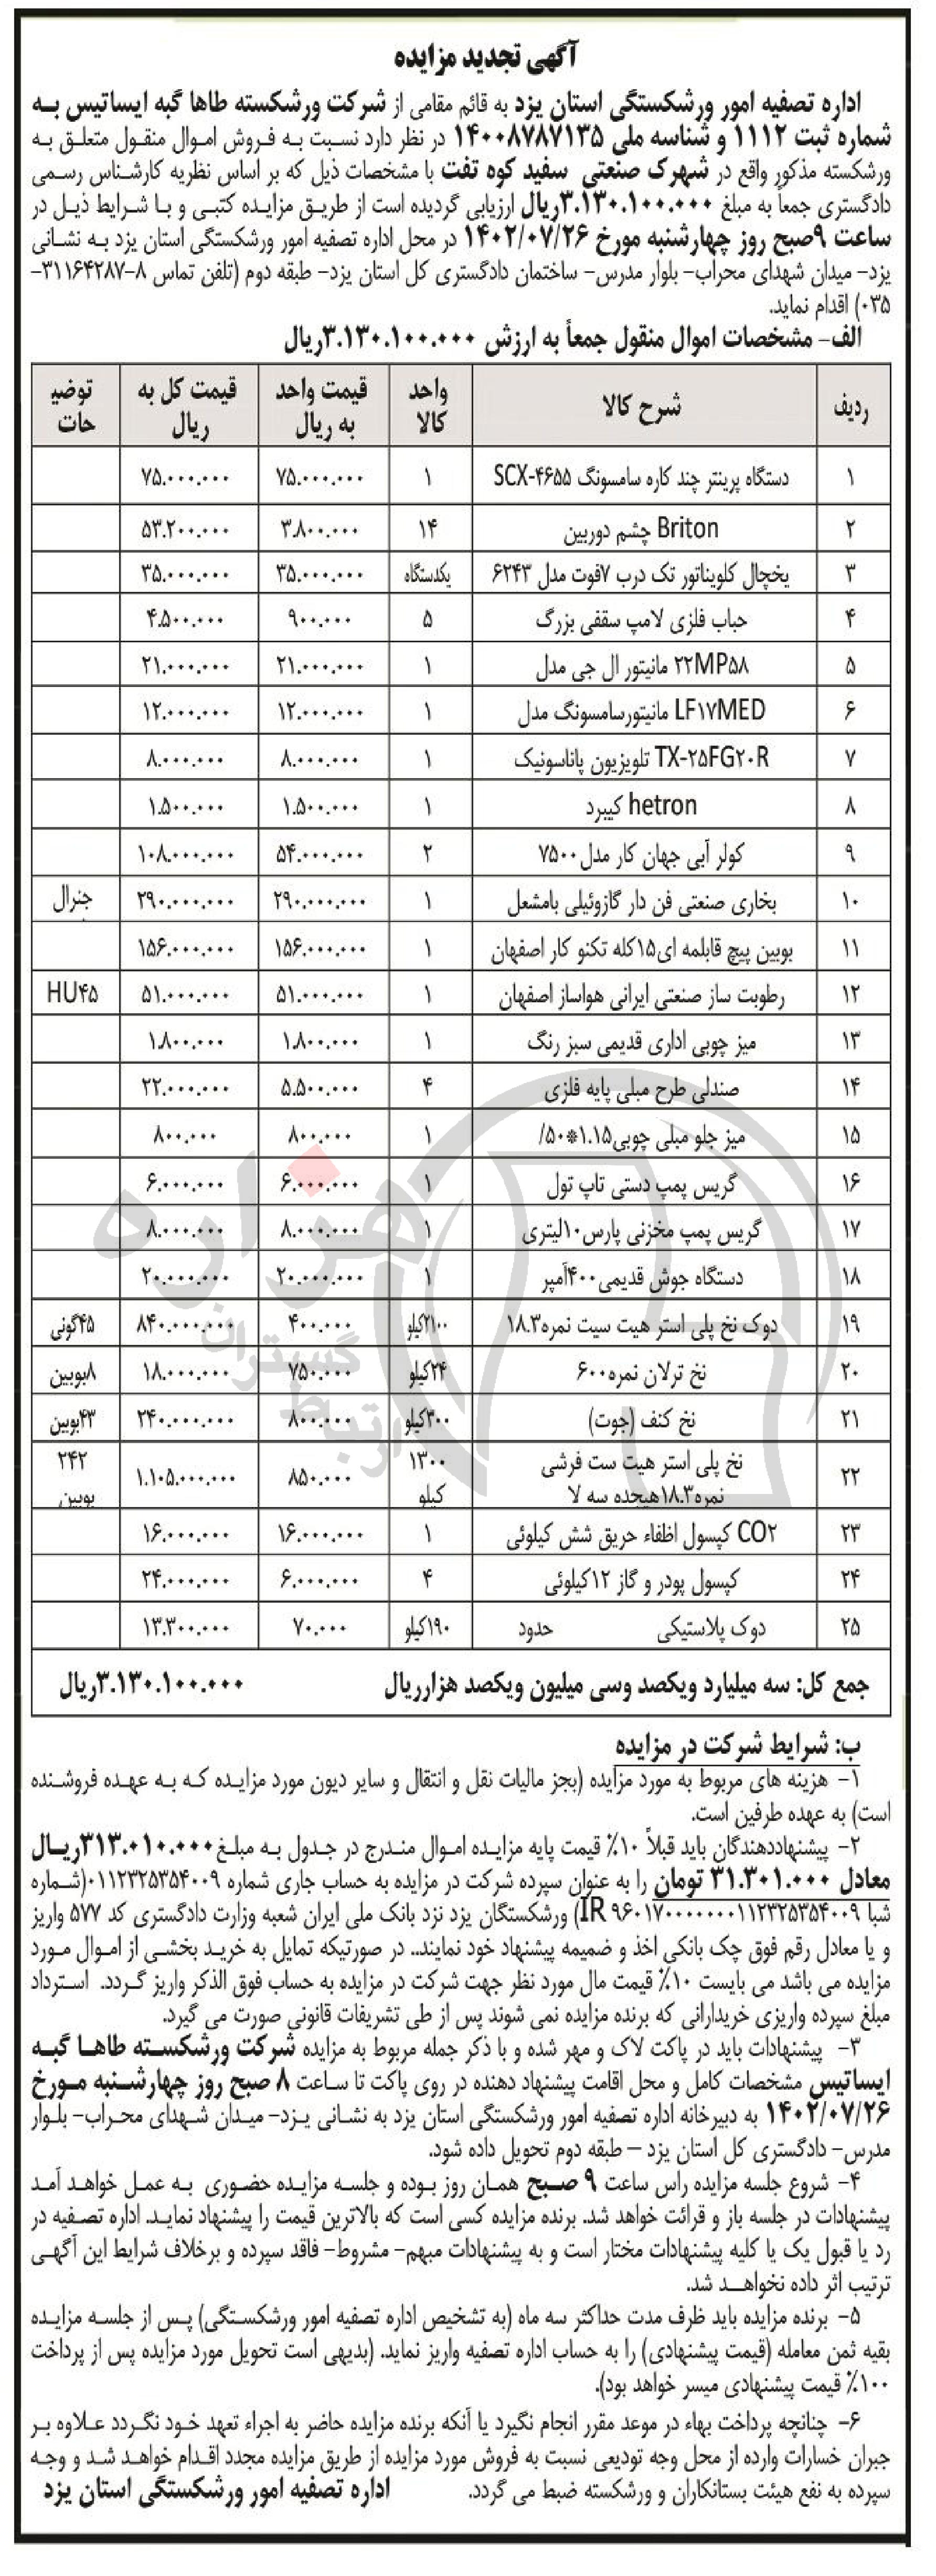 آگهی تجدید مزایده
اداره تصفیه امور ورشکستگی استان یزد به قائم مقامی از شرکت ورشکسته طاها گبه ایساتیس به
شماره ثبت ۱۱۱۲ و شناسه ملی ۱۴۰۰۸۷۸۷۱۳۵ در نظر دارد نسبت به فروش اموال منقول متعلق به
ورشکسته مذکور واقع در شهرک صنعتی سفید کوه تفت با مشخصات ذیل که بر اساس نظریه کارشناس رسمی
دادگستری جمعاً به مبلغ ۳.۱۳۰.۱۰۰.۰۰۰ریال ارزیابی گردیده است از طریق مزایده کتبی و با شرایط ذیل در
ساعت ۹صبح روز چهارشنبه مورخ ۱۴۰۲/۰۷/۲۶ در محل اداره تصفیه امور ورشکستگی استان یزد به نشانی
یزد- میدان شهدای محراب- بلوار مدرس- ساختمان دادگستری کل استان یزد- طبقه دوم (تلفن تماس ۸-۳۱۱۶۴۲۸۷-
۰۳۵) اقدام نماید.
الف- مشخصات اموال منقول جمعاً به ارزش ۳.۱۳۰.۱۰۰.۰۰۰ریال
ردیف شرح کالا واحد کالا قیمت واحد به ریال قیمت کل به ریال توضیحات
۱ دستگاه پرینتر چند کاره سامسونگ SCX-۴۶۵۵ ۱ ۷۵.۰۰۰.۰۰۰ ۷۵.۰۰۰.۰۰۰
۲ Briton چشم دوربین ۱۴ ۳.۸۰۰.۰۰۰ ۵۳.۲۰۰.۰۰۰
۳ یخچال کلویناتور تک درب ۷فوت مدل ۶۲۴۳ یکدستگاه ۳۵.۰۰۰.۰۰۰ ۳۵.۰۰۰.۰۰۰
۴ حباب فلزی لامپ سقفی بزرگ ۵ ۹۰۰.۰۰۰ ۴.۵۰۰.۰۰۰
۵ ۲۲MP۵۸ مانیتور ال جی مدل ۱ ۲۱.۰۰۰.۰۰۰ ۲۱.۰۰۰.۰۰۰
۶ LF۱۷MED مانیتورسامسونگ مدل ۱ ۱۲.۰۰۰.۰۰۰ ۱۲.۰۰۰.۰۰۰
۷ TX-۲۵FG۲۰R تلویزیون پاناسونیک ۱ ۸.۰۰۰.۰۰۰ ۸.۰۰۰.۰۰۰
۸ hetron کیبرد ۱ ۱.۵۰۰.۰۰۰ ۱.۵۰۰.۰۰۰
۹ کولر آبی جهان کار مدل ۷۵۰۰ ۲ ۵۴.۰۰۰.۰۰۰ ۱۰۸.۰۰۰.۰۰۰
۱۰ بخاری صنعتی فن دار گازوئیلی بامشعل ۱ ۲۹۰.۰۰۰.۰۰۰ ۲۹۰.۰۰۰.۰۰۰ جنرال
۱۱ بوبین پیچ قابلمه ای۱۵کله تکنو کار اصفهان ۱ ۱۵۶.۰۰۰.۰۰۰ ۱۵۶.۰۰۰.۰۰۰
۱۲ رطوبت ساز صنعتی ایرانی هواساز اصفهان ۱ ۵۱.۰۰۰.۰۰۰ ۵۱.۰۰۰.۰۰۰ HU۴۵
۱۳ میز چوبی اداری قدیمی سبز رنگ ۱ ۱.۸۰۰.۰۰۰ ۱.۸۰۰.۰۰۰
۱۴ صندلی طرح مبلی پایه فلزی ۴ ۵.۵۰۰.۰۰۰ ۲۲.۰۰۰.۰۰۰
۱۵ میز جلو مبلی چوبی۱.۱۵*۵۰/ ۱ ۸۰۰.۰۰۰ ۸۰۰.۰۰۰
۱۶ گریس پمپ دستی تاپ تول ۱ ۶.۰۰۰.۰۰۰ ۶.۰۰۰.۰۰۰
۱۷ گریس پمپ مخزنی پارس۱۰لیتری ۱ ۸.۰۰۰.۰۰۰ ۸.۰۰۰.۰۰۰
۱۸ دستگاه جوش قدیمی۴۰۰آمپر ۱ ۲۰.۰۰۰.۰۰۰ ۲۰.۰۰۰.۰۰۰
۱۹ دوک نخ پلی استر هیت سیت نمره۱۸.۳ ۲۱۰۰کیلو ۴۰۰.۰۰۰ ۸۴۰.۰۰۰.۰۰۰ ۴۵گونی
۲۰ نخ ترلان نمره۶۰۰ ۲۴کیلو ۷۵۰.۰۰۰ ۱۸.۰۰۰.۰۰۰ ۸بوبین
۲۱ نخ کنف (جوت) ۳۰۰کیلو ۸۰۰.۰۰۰ ۲۴۰.۰۰۰.۰۰۰ ۴۳بوبین
۲۲ نخ پلی استر هیت ست فرشی نمره۱۸.۳هیجده سه لا ۱۳۰۰ کیلو ۸۵۰.۰۰۰ ۱.۱۰۵.۰۰۰.۰۰۰ ۲۴۲ بوبین
۲۳ CO۲ کپسول اطفاء حریق شش کیلوئی ۱ ۱۶.۰۰۰.۰۰۰ ۱۶.۰۰۰.۰۰۰
۲۴ کپسول پودر و گاز ۱۲کیلوئی ۴ ۶.۰۰۰.۰۰۰ ۲۴.۰۰۰.۰۰۰
۲۵ دوک پلاستیکی حدود ۱۹۰کیلو ۷۰.۰۰۰ ۱۳.۳۰۰.۰۰۰
جمع کل: سه میلیارد ویکصد وسی میلیون ویکصد هزارریال ۳.۱۳۰.۱۰۰.۰۰۰ریال
ب: شرایط شرکت در مزایده
۱- هزینه های مربوط به مورد مزایده (بجز مالیات نقل و انتقال و سایر دیون مورد مزایده که به عهده فروشنده
است) به عهده طرفین است.
۲- پیشنهاددهندگان باید قبلاً ۱۰٪ قیمت پایه مزایده اموال مندرج در جدول به مبلغ۳۱۳.۰۱۰.۰۰۰ریال
معادل ۳۱.۳۰۱.۰۰۰ تومان را به عنوان سپرده شرکت در مزایده به حساب جاری شماره ۰۱۱۲۳۲۵۳۵۴۰۰۹(شماره
شبا IR ۹۶۰۱۷۰۰۰۰۰۰۰۱۱۲۳۲۵۳۵۴۰۰۹) ورشکستگان یزد نزد بانک ملی ایران شعبه وزارت دادگستری کد ۵۷۷ واریز
و یا معادل رقم فوق چک بانکی اخذ و ضمیمه پیشنهاد خود نمایند.. در صورتیکه تمایل به خرید بخشی از اموال مورد
مزایده می باشد می بایست ۱۰٪ قیمت مال مورد نظر جهت شرکت در مزایده به حساب فوق الذکر واریز گردد. استرداد
مبلغ سپرده واریزی خریدارانی که برنده مزایده نمی شوند پس از طی تشریفات قانونی صورت می گیرد.
۳- پیشنهادات باید در پاکت لاک و مهر شده و با ذکر جمله مربوط به مزایده شرکت ورشکسته طاها گبه
ایساتیس مشخصات کامل و محل اقامت پیشنهاد دهنده در روی پاکت تا ساعت ۸ صبح روز چهارشنبه مورخ
۱۴۰۲/۰۷/۲۶ به دبیرخانه اداره تصفیه امور ورشکستگی استان یزد به نشانی یزد- میدان شهدای محراب- بلوار
مدرس- دادگستری کل استان یزد – طبقه دوم تحویل داده شود.
۴- شروع جلسه مزایده راس ساعت ۹ صبح همان روز بوده و جلسه مزایده حضوری به عمل خواهد آمد
پیشنهادات در جلسه باز و قرائت خواهد شد. برنده مزایده کسی است که بالاترین قیمت را پیشنهاد نماید. اداره تصفیه در
رد یا قبول یک یا کلیه پیشنهادات مختار است و به پیشنهادات مبهم- مشروط- فاقد سپرده و برخلاف شرایط این آگهی
ترتیب اثر داده نخواهد شد.
۵- برنده مزایده باید ظرف مدت حداکثر سه ماه (به تشخیص اداره تصفیه امور ورشکستگی) پس از جلسه مزایده
بقیه ثمن معامله (قیمت پیشنهادی) را به حساب اداره تصفیه واریز نماید. (بدیهی است تحویل مورد مزایده پس از پرداخت
۱۰۰٪ قیمت پیشنهادی میسر خواهد بود).
۶- چنانچه پرداخت بهاء در موعد مقرر انجام نگیرد یا آنکه برنده مزایده حاضر به اجراء تعهد خود نگردد علاوه بر
جبران خسارات وارده از محل وجه تودیعی نسبت به فروش مورد مزایده از طریق مزایده مجدد اقدام خواهد شد و وجه
سپرده به نفع هیئت بستانکاران و ورشکسته ضبط می گردد. اداره تصفیه امور ورشکستگی استان یزد
هزاره
گستران
ارتباط